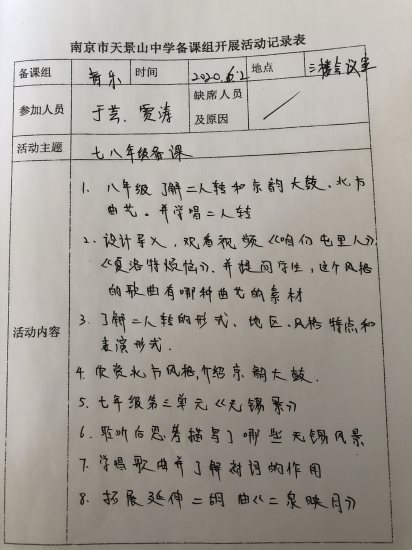 南京市天景山中学备课组开展活动记录表
备课组 音乐 时间 2020.6.2 地点 三楼会议室
参加人员 于芸、贾涛 缺席人员及原因
活动主题 七八年级备课
活动内容
1. 八年级了解二人转和京韵大鼓、北方
曲艺。并学唱二人转
2. 设计导入,观看视频《咱们屯里人》
《夏洛特烦恼》,并提问学生,这个风格
的歌曲有哪种曲艺的素材
3. 了解二人转的形式、地区、风格特点和
表演形式.
4. 欣赏北方风格,介绍京韵大鼓.
5. 七年级第三单元《无锡景》
6. 聆听后思考描写了哪些无锡风景
7. 学唱歌曲并了解衬词的作用
8. 拓展延伸二胡曲《二泉映月》